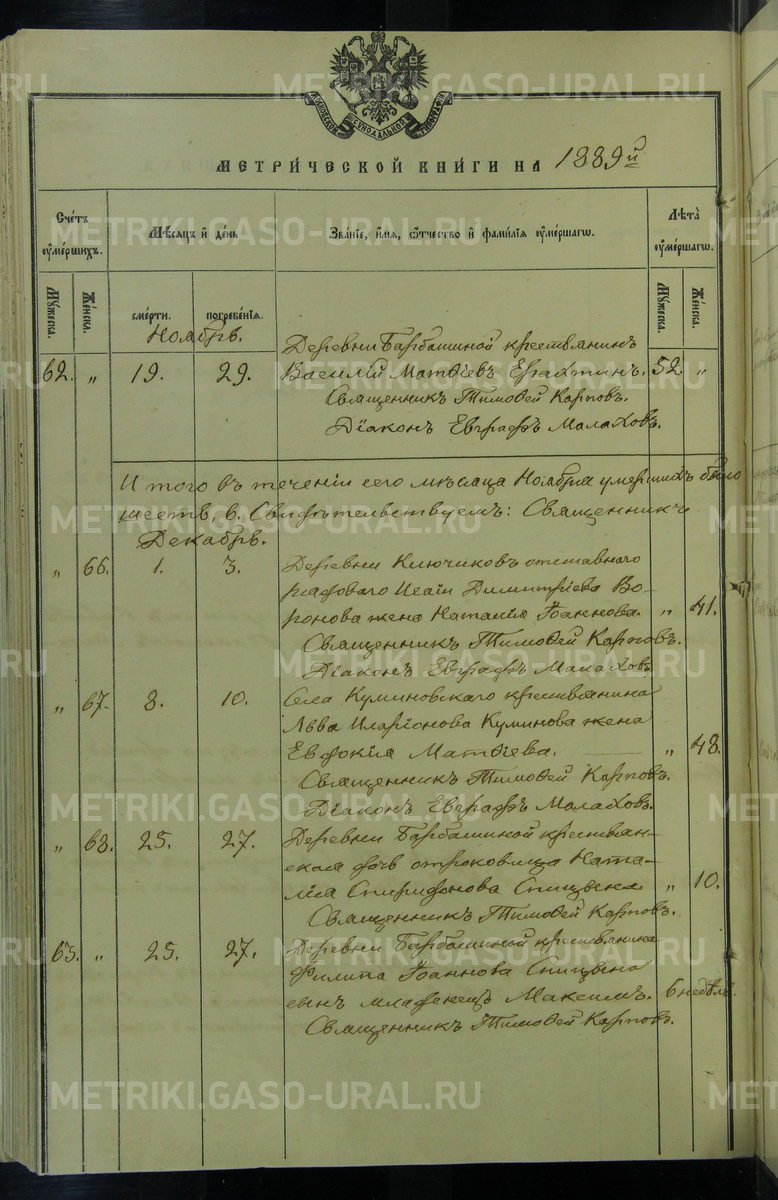 МОСКОВСКОЙ СѴНОДАЛЬНОЙ ТИПОГРАФІИ
МЕТРИ́ЧЕСКОЙ КНИ́ГИ НА 1889й
Сче́тъ ᲂу҆ме́ршихъ.
Мѣ́сяцъ и҆ де́нь
Зва́нїе, и҆́мя, ѻ҆́тчество и҆ фами́лїя ᲂу҆ме́ршагѡ.
Лѣ́та ᲂу҆ме́ршагѡ.
Му́жеска. Же́нска. сме́рти. погребе́нїя. Му́жеска. Же́нска.
Ноябрь.
Деревни Барбашиной крестьянинъ
62. „ 19. 29. Василій Матѳіевъ Ерахтинъ. 52. „
Священникъ Тимоѳей Карповъ.
Діаконъ Евграфъ Малаховъ.
Итого въ теченіи сего мѣсяца Ноября умершихъ было
шесть, 6. Свидѣтельствуемъ: Священникъ
Декабрь.
„ 66. 1. 3. Деревни Ключиковъ отставнаго
рядоваго Исаіи Димитріева Во-
ронова жена Наталія Іоаннова. „ 41.
Священникъ Тимоѳей Карповъ.
Діаконъ Евграфъ Малаховъ
„ 67. 8. 10. Села Куминовскаго крестьянина
Льва Иларіонова Куминова жена
Евдокія Матѳіева. „ 48.
Священникъ Тимоѳей Карповъ.
Діаконъ Евграфъ Малаховъ.
„ 68. 25. 27. Деревни Барбашиной крестьян-
ская дочь отроковица Ната-
лія Спиридонова Спицына „ 10.
Священникъ Тимоѳей Карповъ.
63. „ 25. 27. Деревни Барбашиной крестьянина
Филипа Іоаннова Спицына
сынъ младенецъ Максимъ. 6 недѣль.
Священникъ Тимоѳей Карповъ.
METRIKI.GASO-URAL.RU